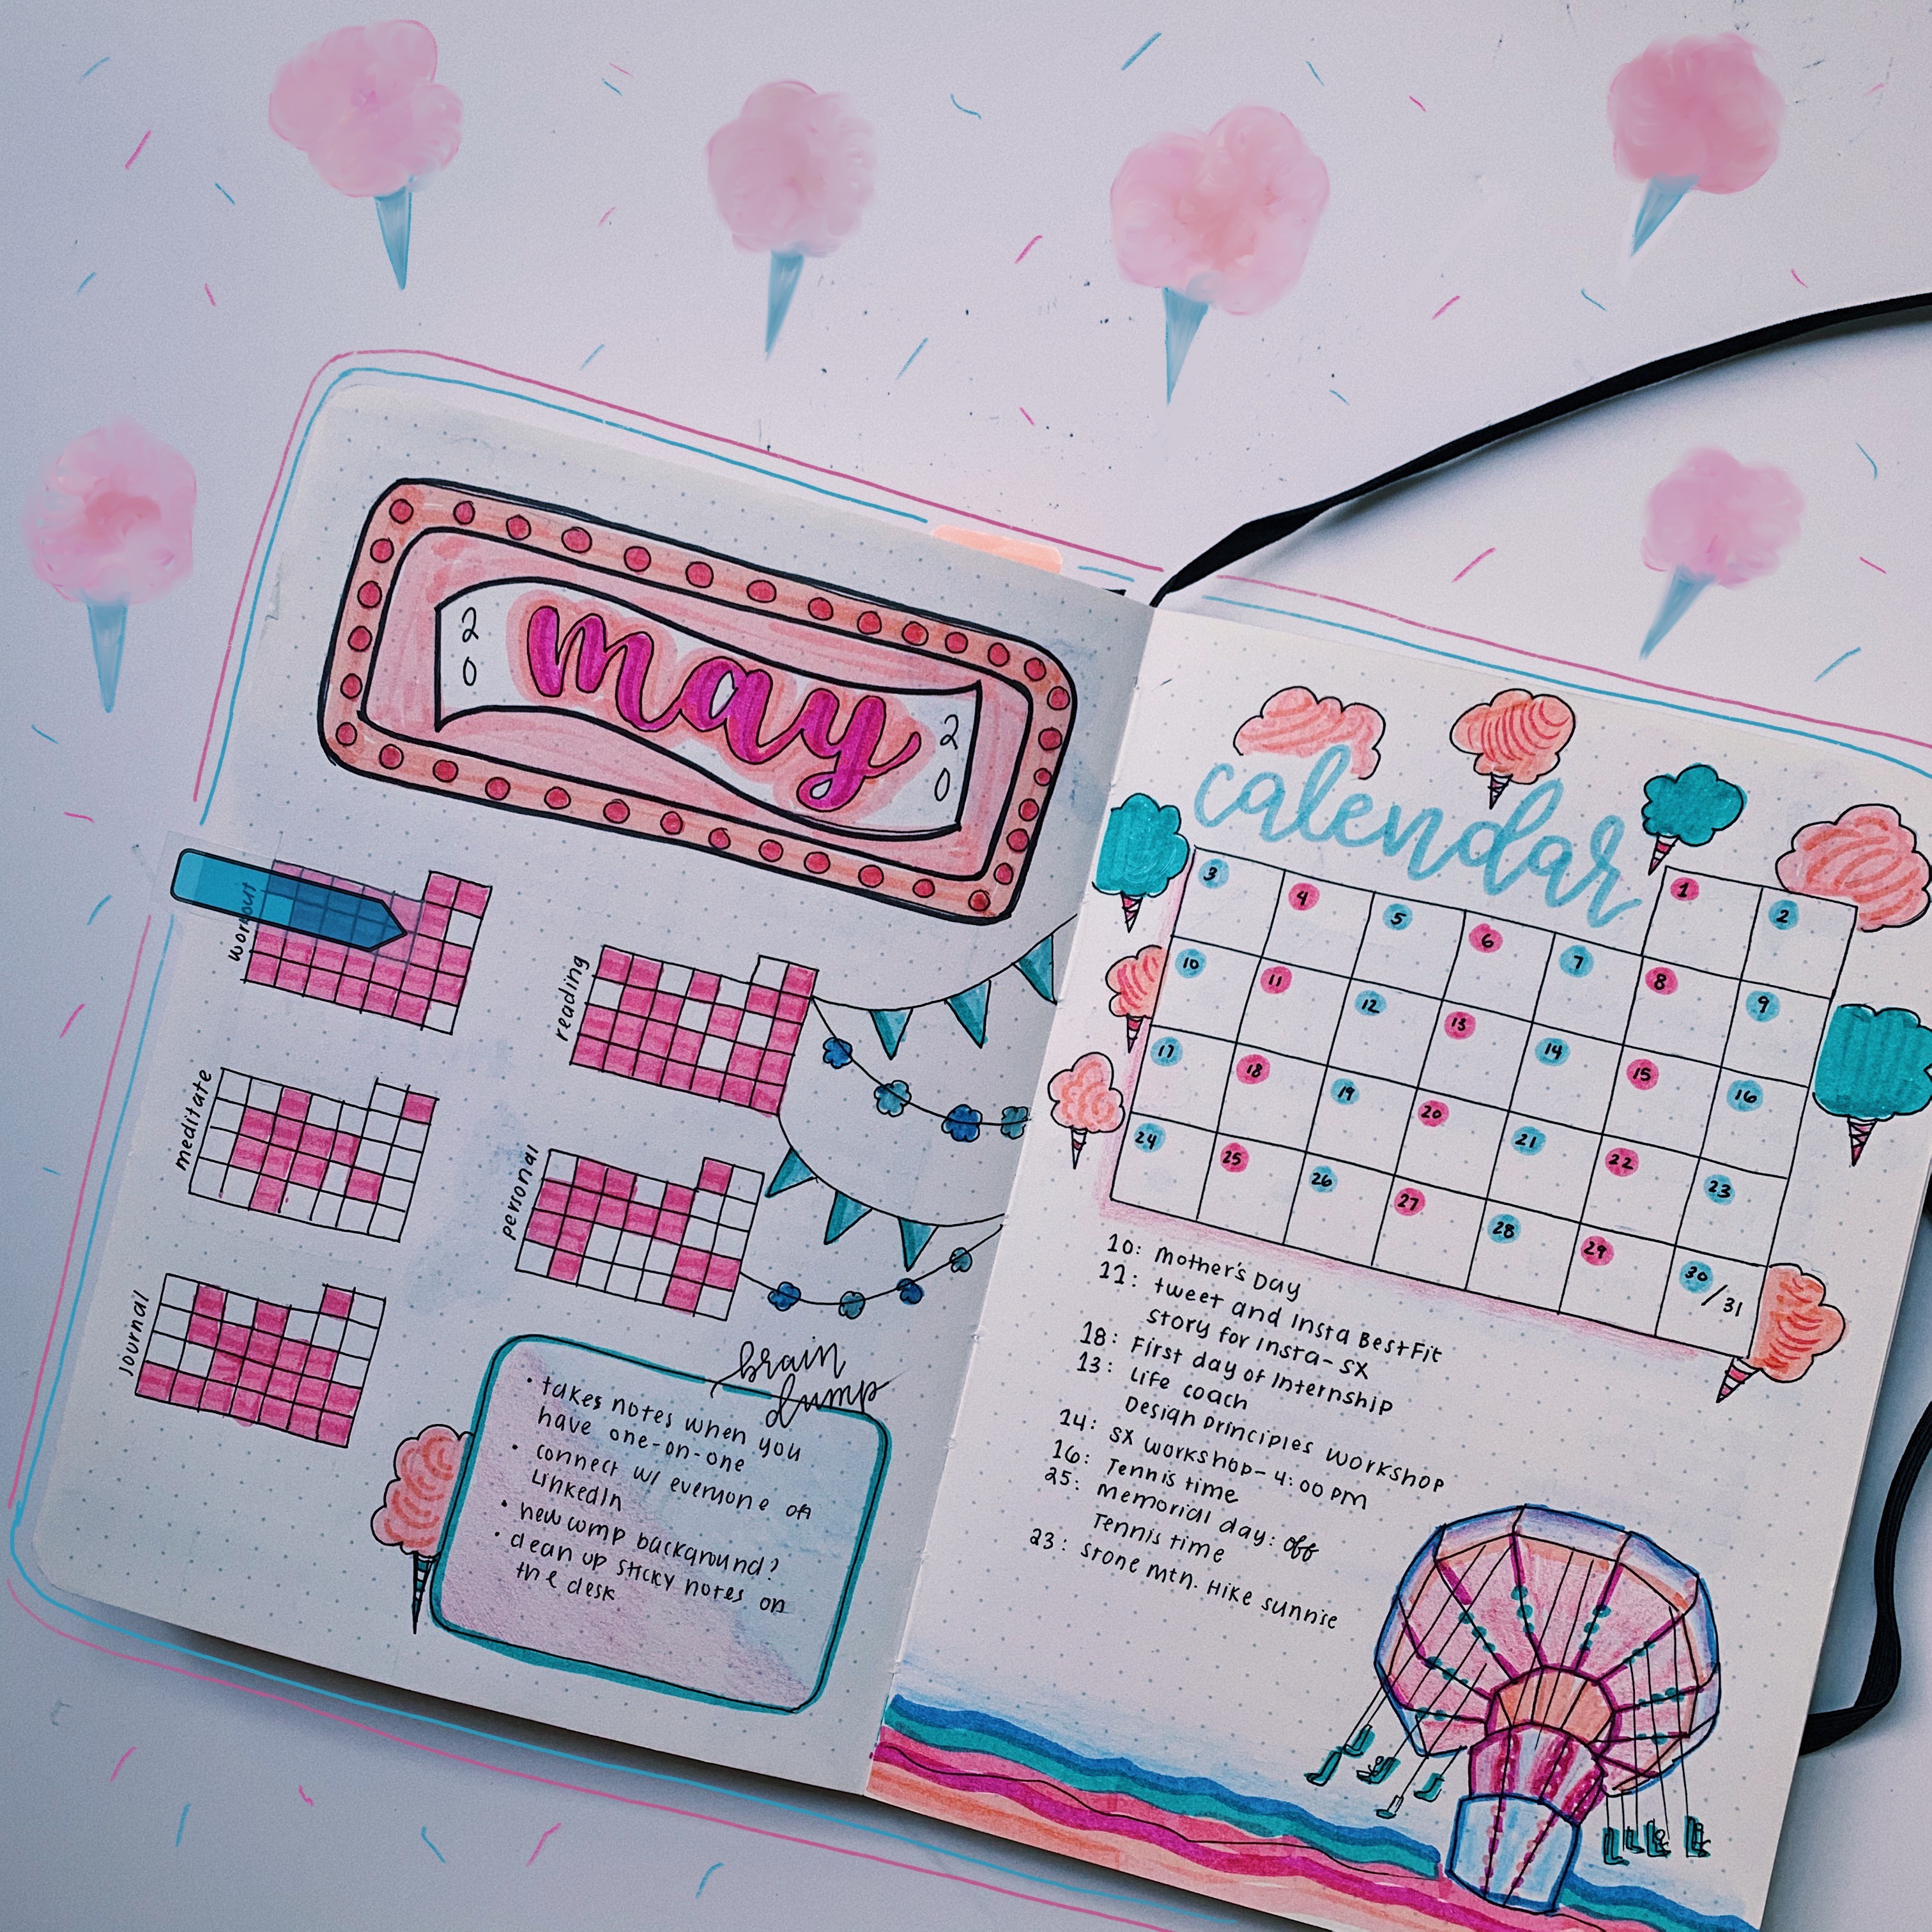 2 may 2
0 0
workout
reading
meditate
personal
Journal
brain
dump
• takes notes when you
have one-on-one
• connect w/ everyone on
LinkedIn
• new comp background?
• clean up sticky notes on
the desk
calendar
1 2
3 4 5 6 7 8 9
10 11 12 13 14 15 16
17 18 19 20 21 22 23
24 25 26 27 28 29 30/31
10: Mother's Day
11: tweet and Insta BestFit
Story for Insta-SX
18: First day of Internship
13: Life coach
Design Principles Workshop
14: SX workshop- 4:00 PM
16: Tennis time
25: Memorial day: off
Tennis time
23: Stone Mtn. Hike sunrise